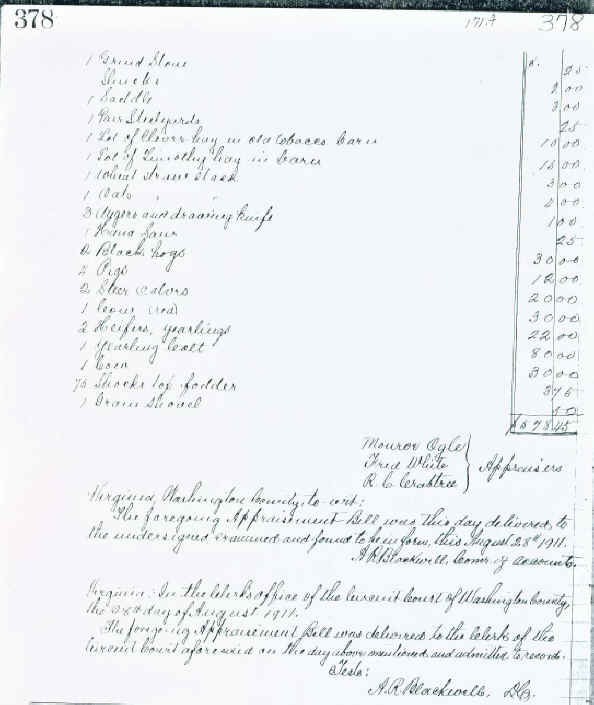 378 171A 378
1 Grind Stone $. 25
Shucks 2 00
1 Saddle 3 00
1 Pair Steelyards 25
1 Lot of Clover hay in old tobacco barn 10 00
1 Lot of Timothy hay in barn 15 00
1 Wheat Straw Stack 3 00
1 Oats " " 2 00
3 Augers and drawing knife 1 00
1 Hand Saw 25
2 Black hogs 30 00
2 Pigs 12 00
2 Steer Calves 20 00
1 Cow (red) 30 00
2 Heifers, yearlings 22 00
1 Yearling Coalt 80 00
1 Cow 30 00
75 Shocks top fodder 3 75
1 Drain Shovel 10
Monroe Ogle
Fred White Appraisers
R. C. Crabtree
Virginia, Washington County, to-wit:
The foregoing Appraisement Bill was this day delivered, to
the undersigned examined and found to be in form, this August 28th 1911.
A.R. Blackwell, Comr. of accounts.
Virginia: In the Clerk's office of the Circuit Court of Washington County,
the 28th day of August 1911.
The foregoing Appraisement Bill was delivered to the Clerk of the
Circuit Court aforesaid on the day above mentioned and admitted to record.
Teste:
A.R. Blackwell, D.C.